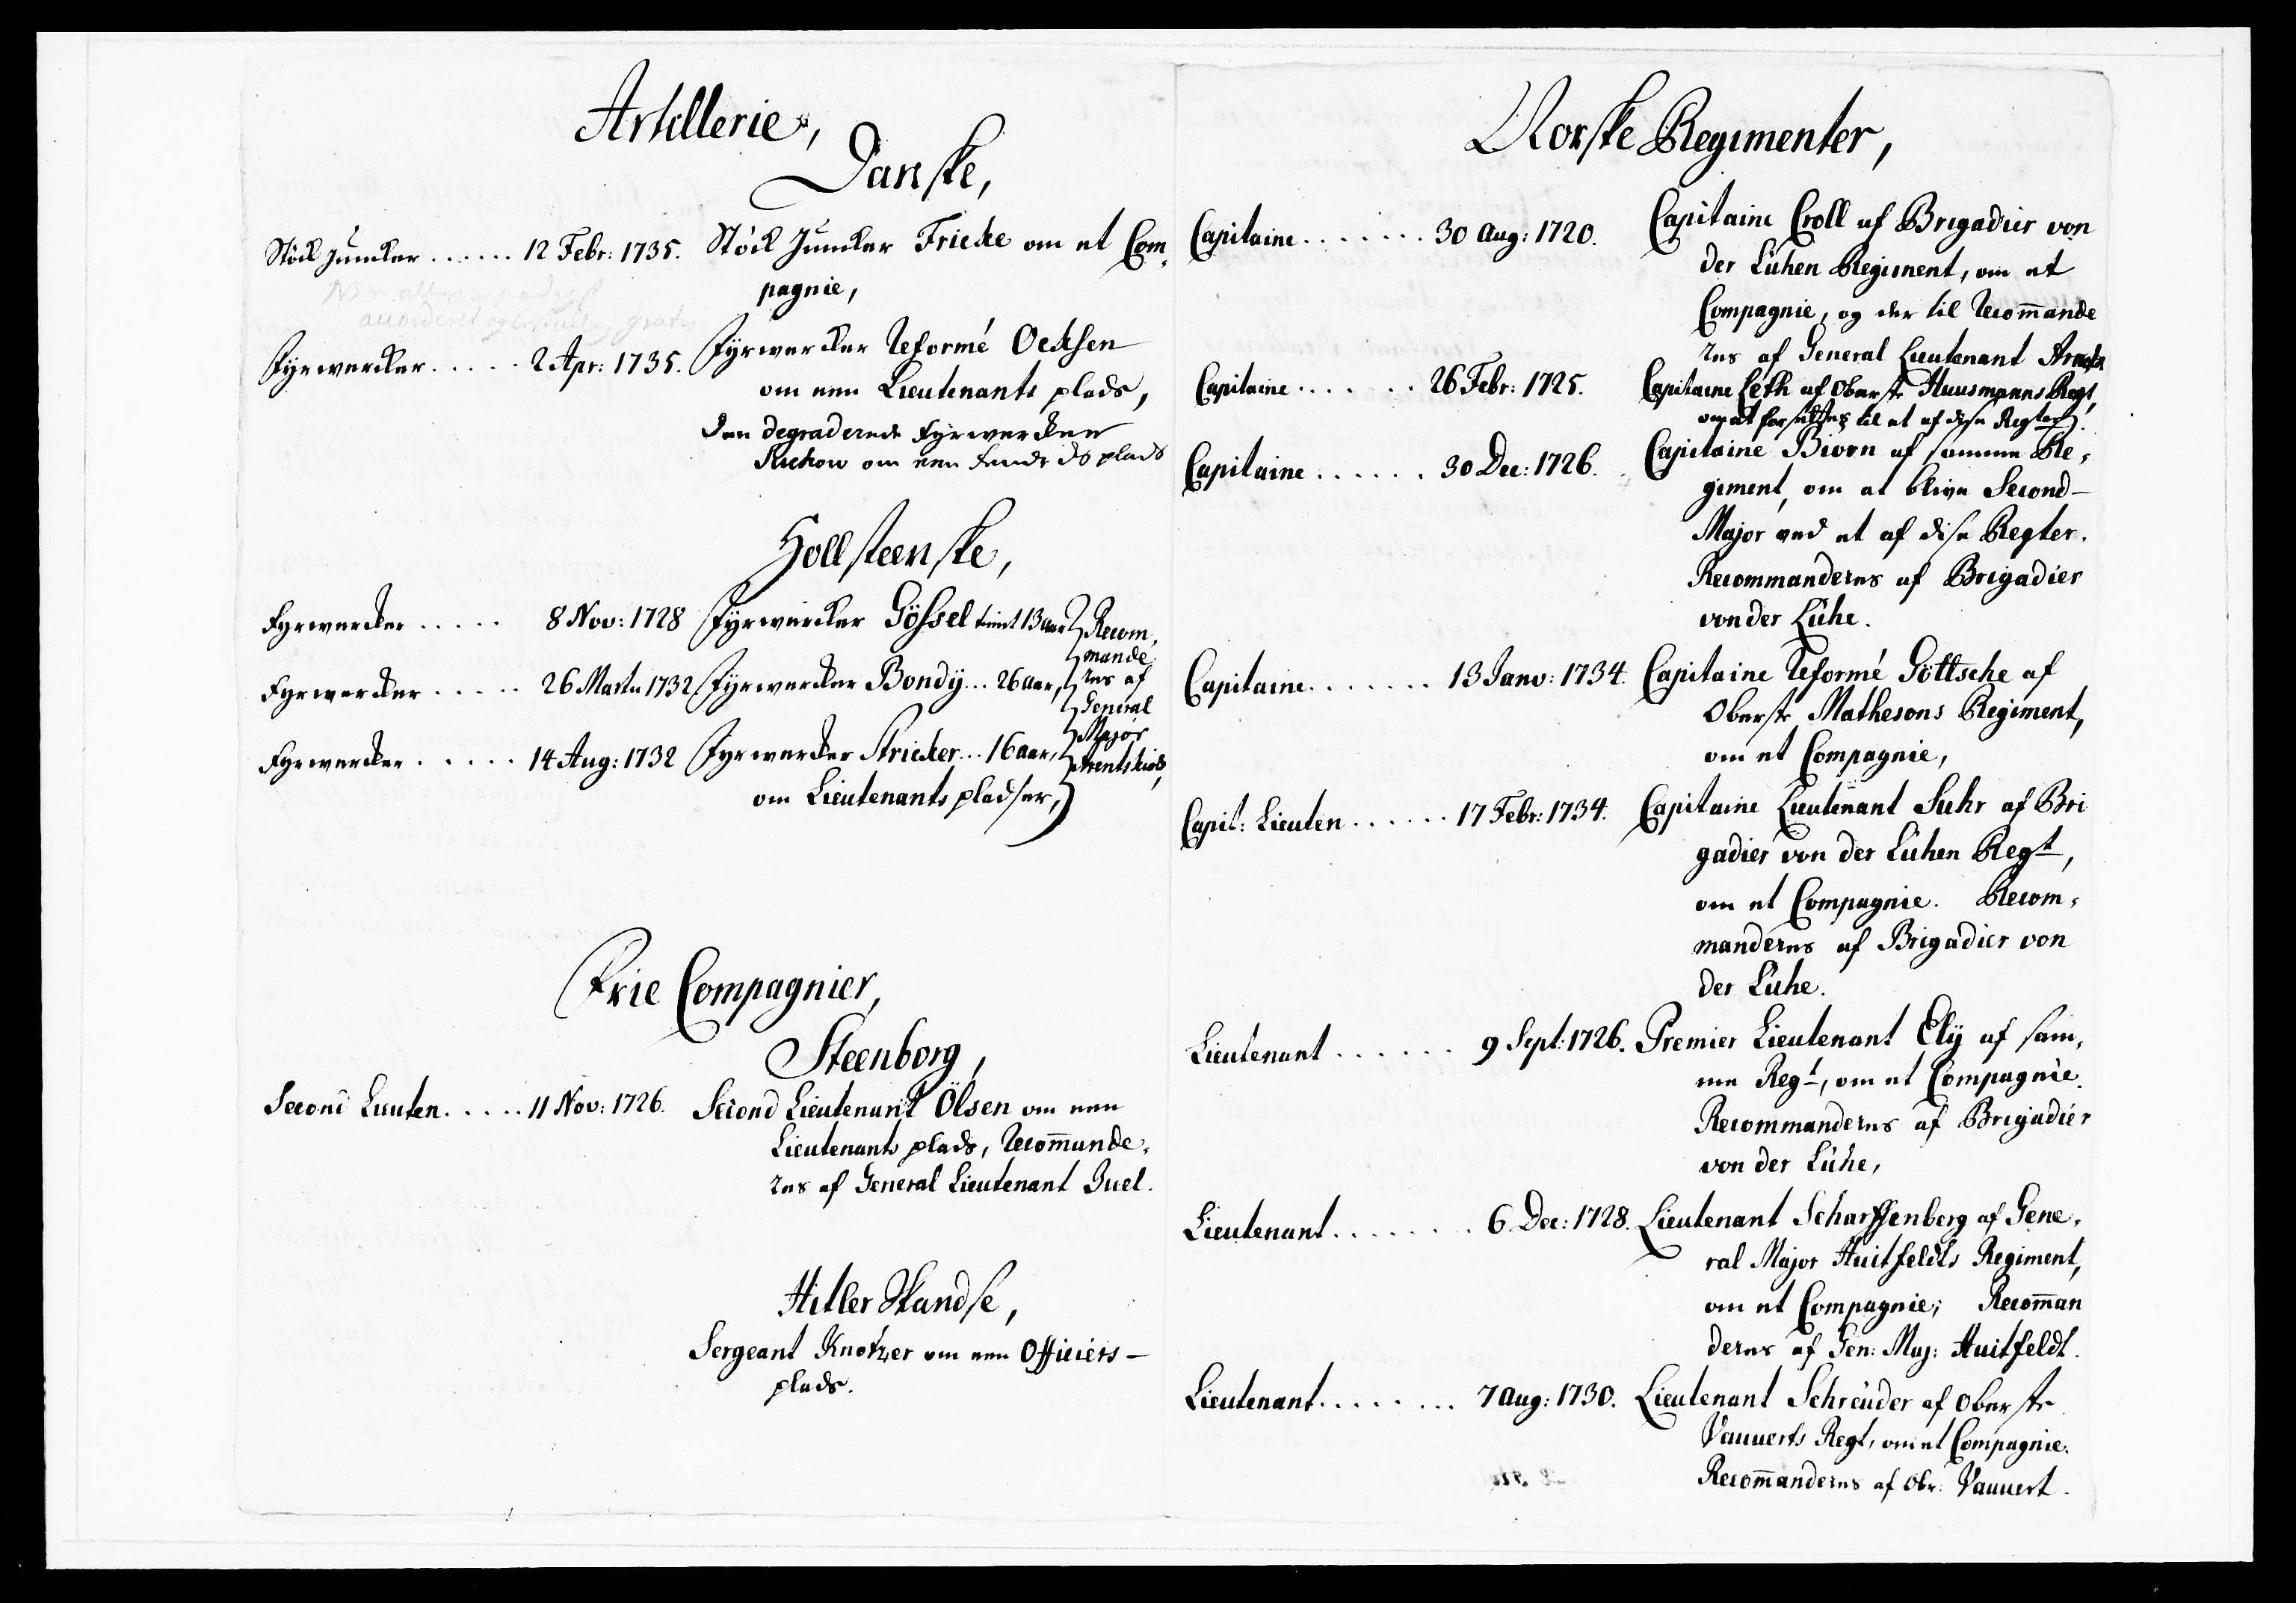 Artillerie,
Danske,
Stöck Juncker ...... 12 Febr: 1735. Stöck Juncker Fricke om et Com,
pagnie,
accorderet og bestalling gratis
Fyrwercker ..... 2 Apr: 1735. Fyrwercker Reformé Ocksen
om een Lieutenants plads,
den degraderede Fyrwercker
om een plads
Hollsteenske,
Fyrwercker ..... 8 Nov: 1728 Fyrwercker Gössel tient 13 aar
Fyrwercker ..... 26 Martii 1732 Fyrwercker Bondÿ... 26 aar,
Fyrwercker ..... 14 Aug: 1732 Fyrwercker Stricker... 16 aar,
om Lieutenants pladser,
Recom,
mande,
res af
General
Major
Arentskiold,
Frie Compagnier,
Steenborg,
Second Lieuten. .... 11 Nov: 1726. Second Lieutenant Ölsen om een
Lieutenants plads, Recom̄ande,
res af General Lieutenant Juel.
Hitler Skandse,
Sergeant Knotzer om een Officiers-
plads.
Norske Regimenter,
Capitaine ....... 30 Aug: 1720. Capitaine Croll af Brigadier von
der Lühen Regiment, om et
Compagnie, og der til Recom̄ande
res af General Lieutenant Arnoldt
Capitaine ...... 26 Febr: 1725. Capitaine Leth af Oberste Huusmanns Regt,
om at forsættes til et af disse Regter.
Capitaine ...... 30 Dec: 1726. Capitaine Biorn af samme Re,
giment, om at blive Second-
Major ved et af disse Regter.
Recommanderes af Brigadier
von der Lühe.
Capitaine ....... 13 Janv: 1734. Capitaine Reformé Göttsche af
Oberste Mathesons Regiment,
om et Compagnie,
Capit: Lieuten ...... 17 Febr: 1734. Capitaine Lieutenant Suhr af Bri
gadier von der Lühen Regt,
om et Compagnie. Recom,
manderes af Brigadier von
der Lühe.
Lieutenant ...... 9 Sept: 1726. Premier Lieutenant Elÿ af sam,
me Regt, om et Compagnie.
Recommanderes af Brigadier
von der Lühe,
Lieutenant ....... 6 Dec: 1728. Lieutenant Scharffenberg af Gene,
ral Major Huitfeldts Regiment,
om et Compagnie; Recom̄an
deres af Gen: Maj: Huitfeldt.
Lieutenant ........ 7 Aug: 1730. Lieutenant Schreuder af Oberste
Vauverts Regt, om et Compagnie.
Recom̄anderes af Obr: Vauvert.